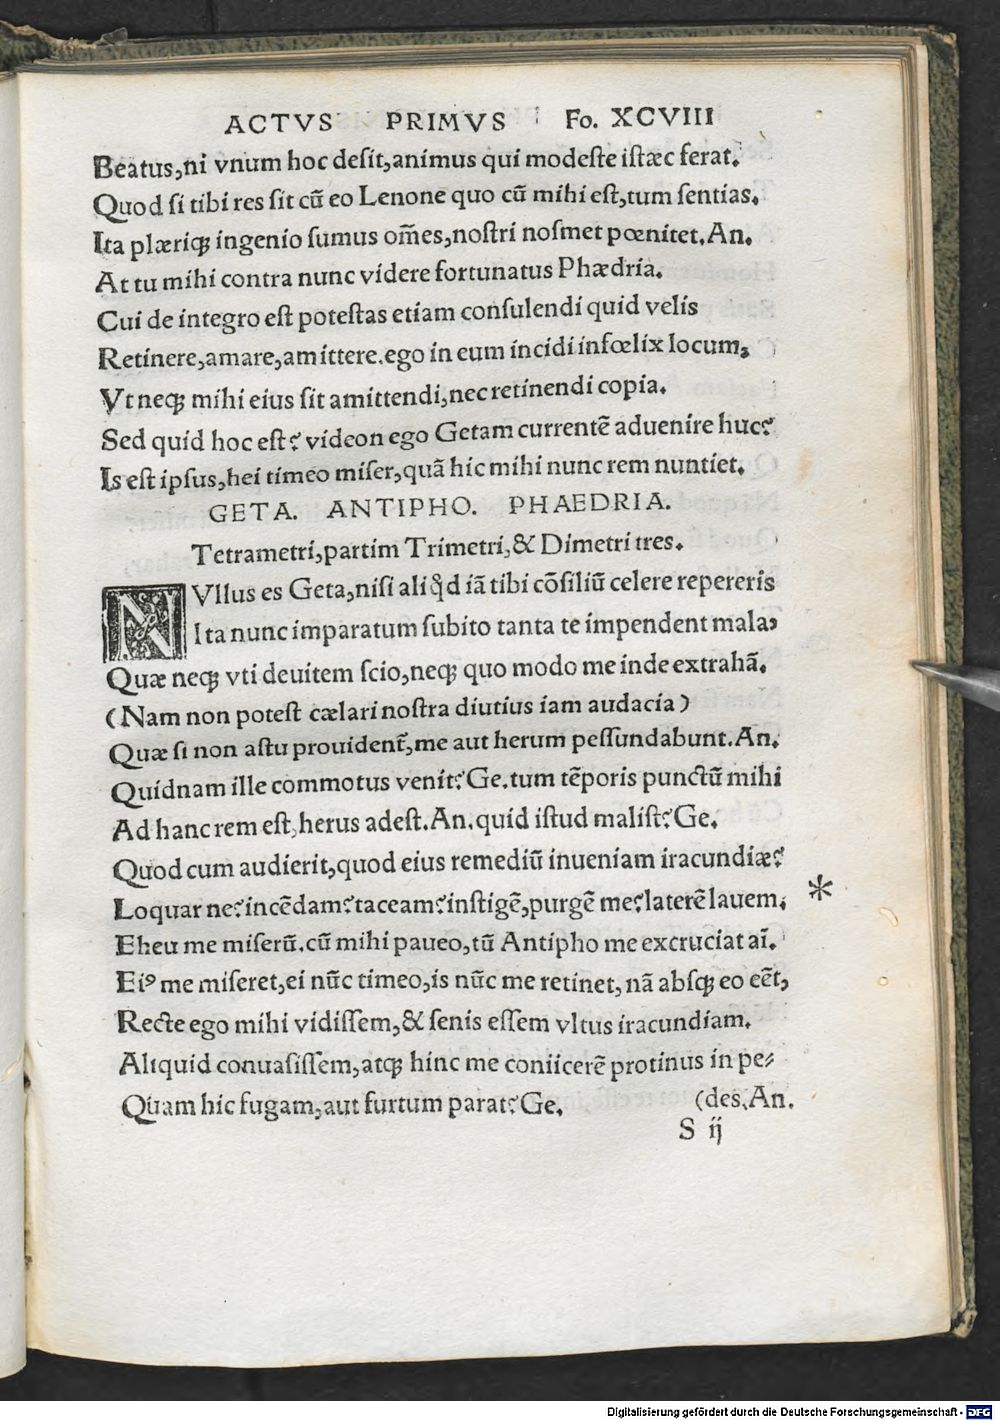 ACTVS PRIMVS Fo. XCVIII
Beatus,ni vnum hoc desit,animus qui modeste istæc ferat.
Quod si tibi res sit cū eo Lenone quo cū mihi est,tum sentias.
Ita plæriqꝫ ingenio sumus om̃es,nostri nosmet pœnitet.An.
At tu mihi contra nunc videre fortunatus Phædria.
Cui de integro est potestas etiam consulendi quid velis
Retinere,amare,amittere.ego in eum incidi infœlix locum,
Vt neqꝫ mihi eius sit amittendi,nec retinendi copia.
Sed quid hoc est? videon ego Getam currentē aduenire huc?
Is est ipsus,hei timeo miser,quā hic mihi nunc rem nuntiet.
GETA. ANTIPHO. PHAEDRIA.
Tetrametri,partim Trimetri,& Dimetri tres.
NVllus es Geta,nisi aliꝗd iā tibi cōsiliū celere repereris
Ita nunc imparatum subito tanta te impendent mala,
Quæ neqꝫ vti deuitem scio,neqꝫ quo modo me inde extrahā.
(Nam non potest cælari nostra diutius iam audacia)
Quæ si non astu prouident̃,me aut herum pessundabunt.An.
Quidnam ille commotus venit? Ge.tum tēporis punctū mihi
Ad hanc rem est,herus adest.An.quid istud malist? Ge.
Quod cum audierit,quod eius remediū inueniam iracundiæ?
Loquar ne? incēdam? taceam? instigē,purgē me? laterē lauem. *
Eheu me miserū.cū mihi paueo,tū Antipho me excruciat aī.
Eiꝰ me miseret,ei nūc timeo,is nūc me retinet, nā absqꝫ eo eēt,
Recte ego mihi vidissem,& senis essem vltus iracundiam.
Aliquid conuasissem,atqꝫ hinc me coniicerē protinus in pe-
Quam hic fugam,aut furtum parat? Ge. (des.An.
S ij
Digitalisierung gefördert durch die Deutsche Forschungsgemeinschaft - DFG